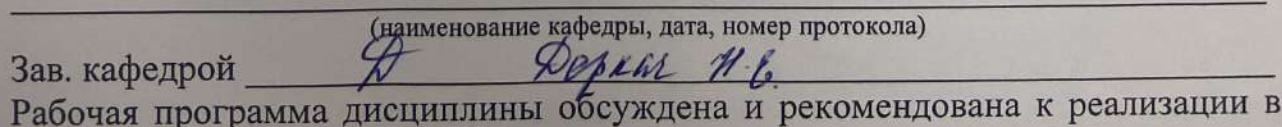 (наименование кафедры, дата, номер протокола)
Зав. кафедрой Д Деркач Н.Е.
Рабочая программа дисциплины обсуждена и рекомендована к реализации в